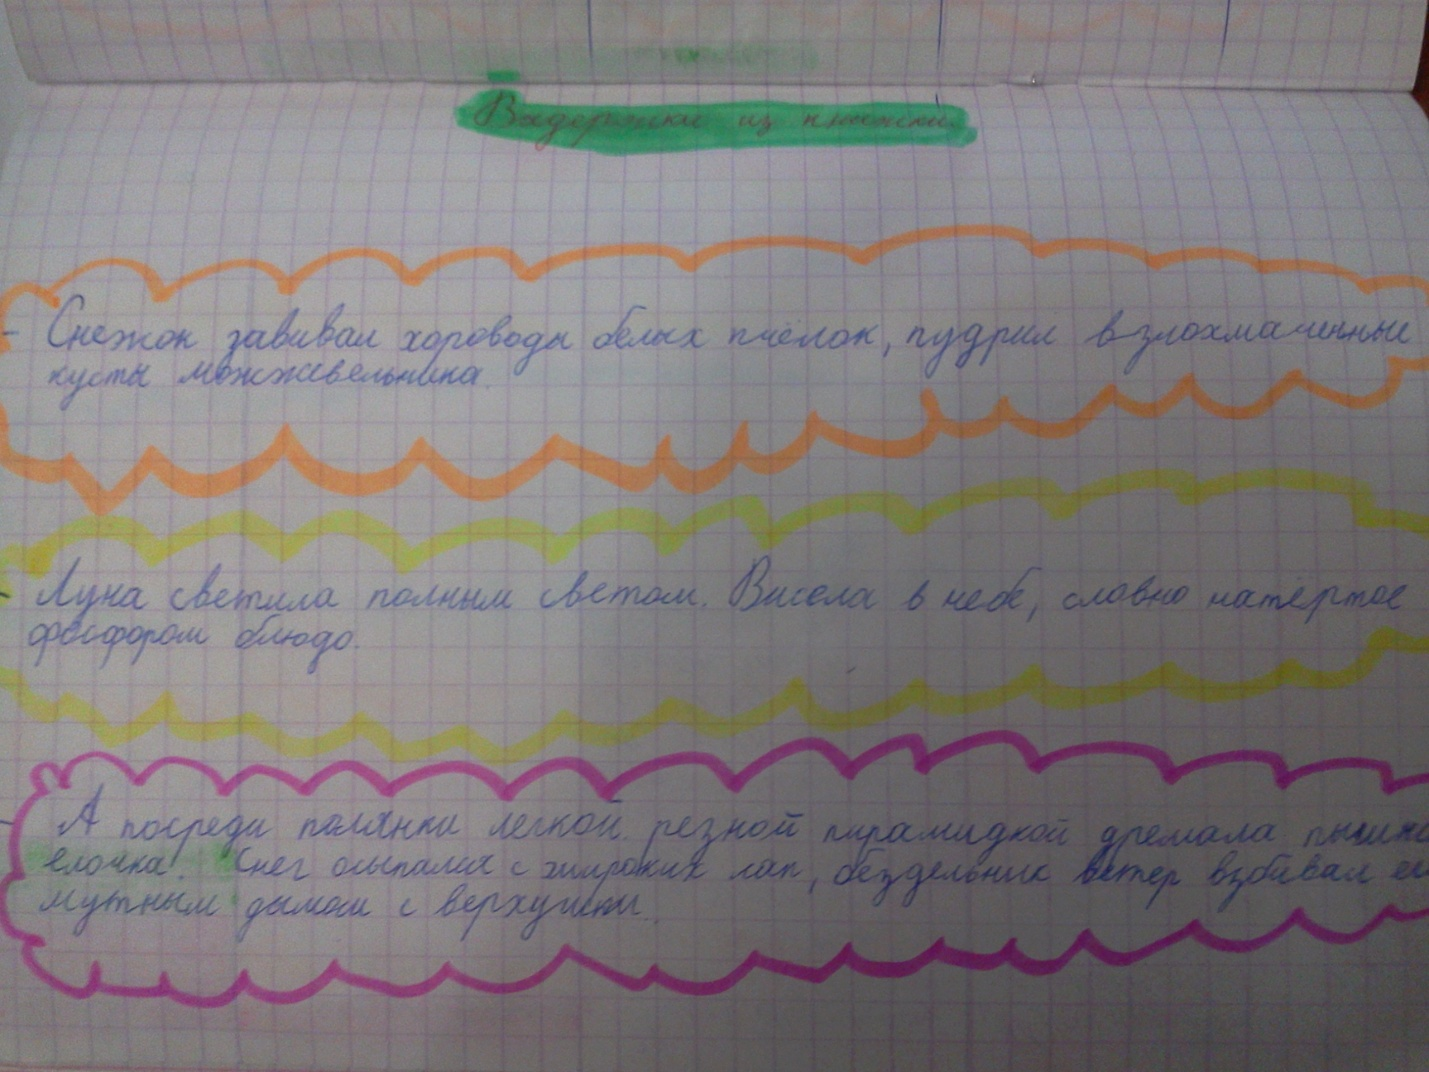 Выдержки из книжки
- Снежок завивал хороводы белых пчёлок, пудрил взлохмаченные
кусты можжевельника.
- Луна светила полным светом. Висела в небе, словно натёртое
фосфором блюдо.
- А посреди полянки легкой резной пирамидкой дремала
елочка. Снег осыпался с широких лап, бездельник ветер взбивал
мутным дымом с верхушки.